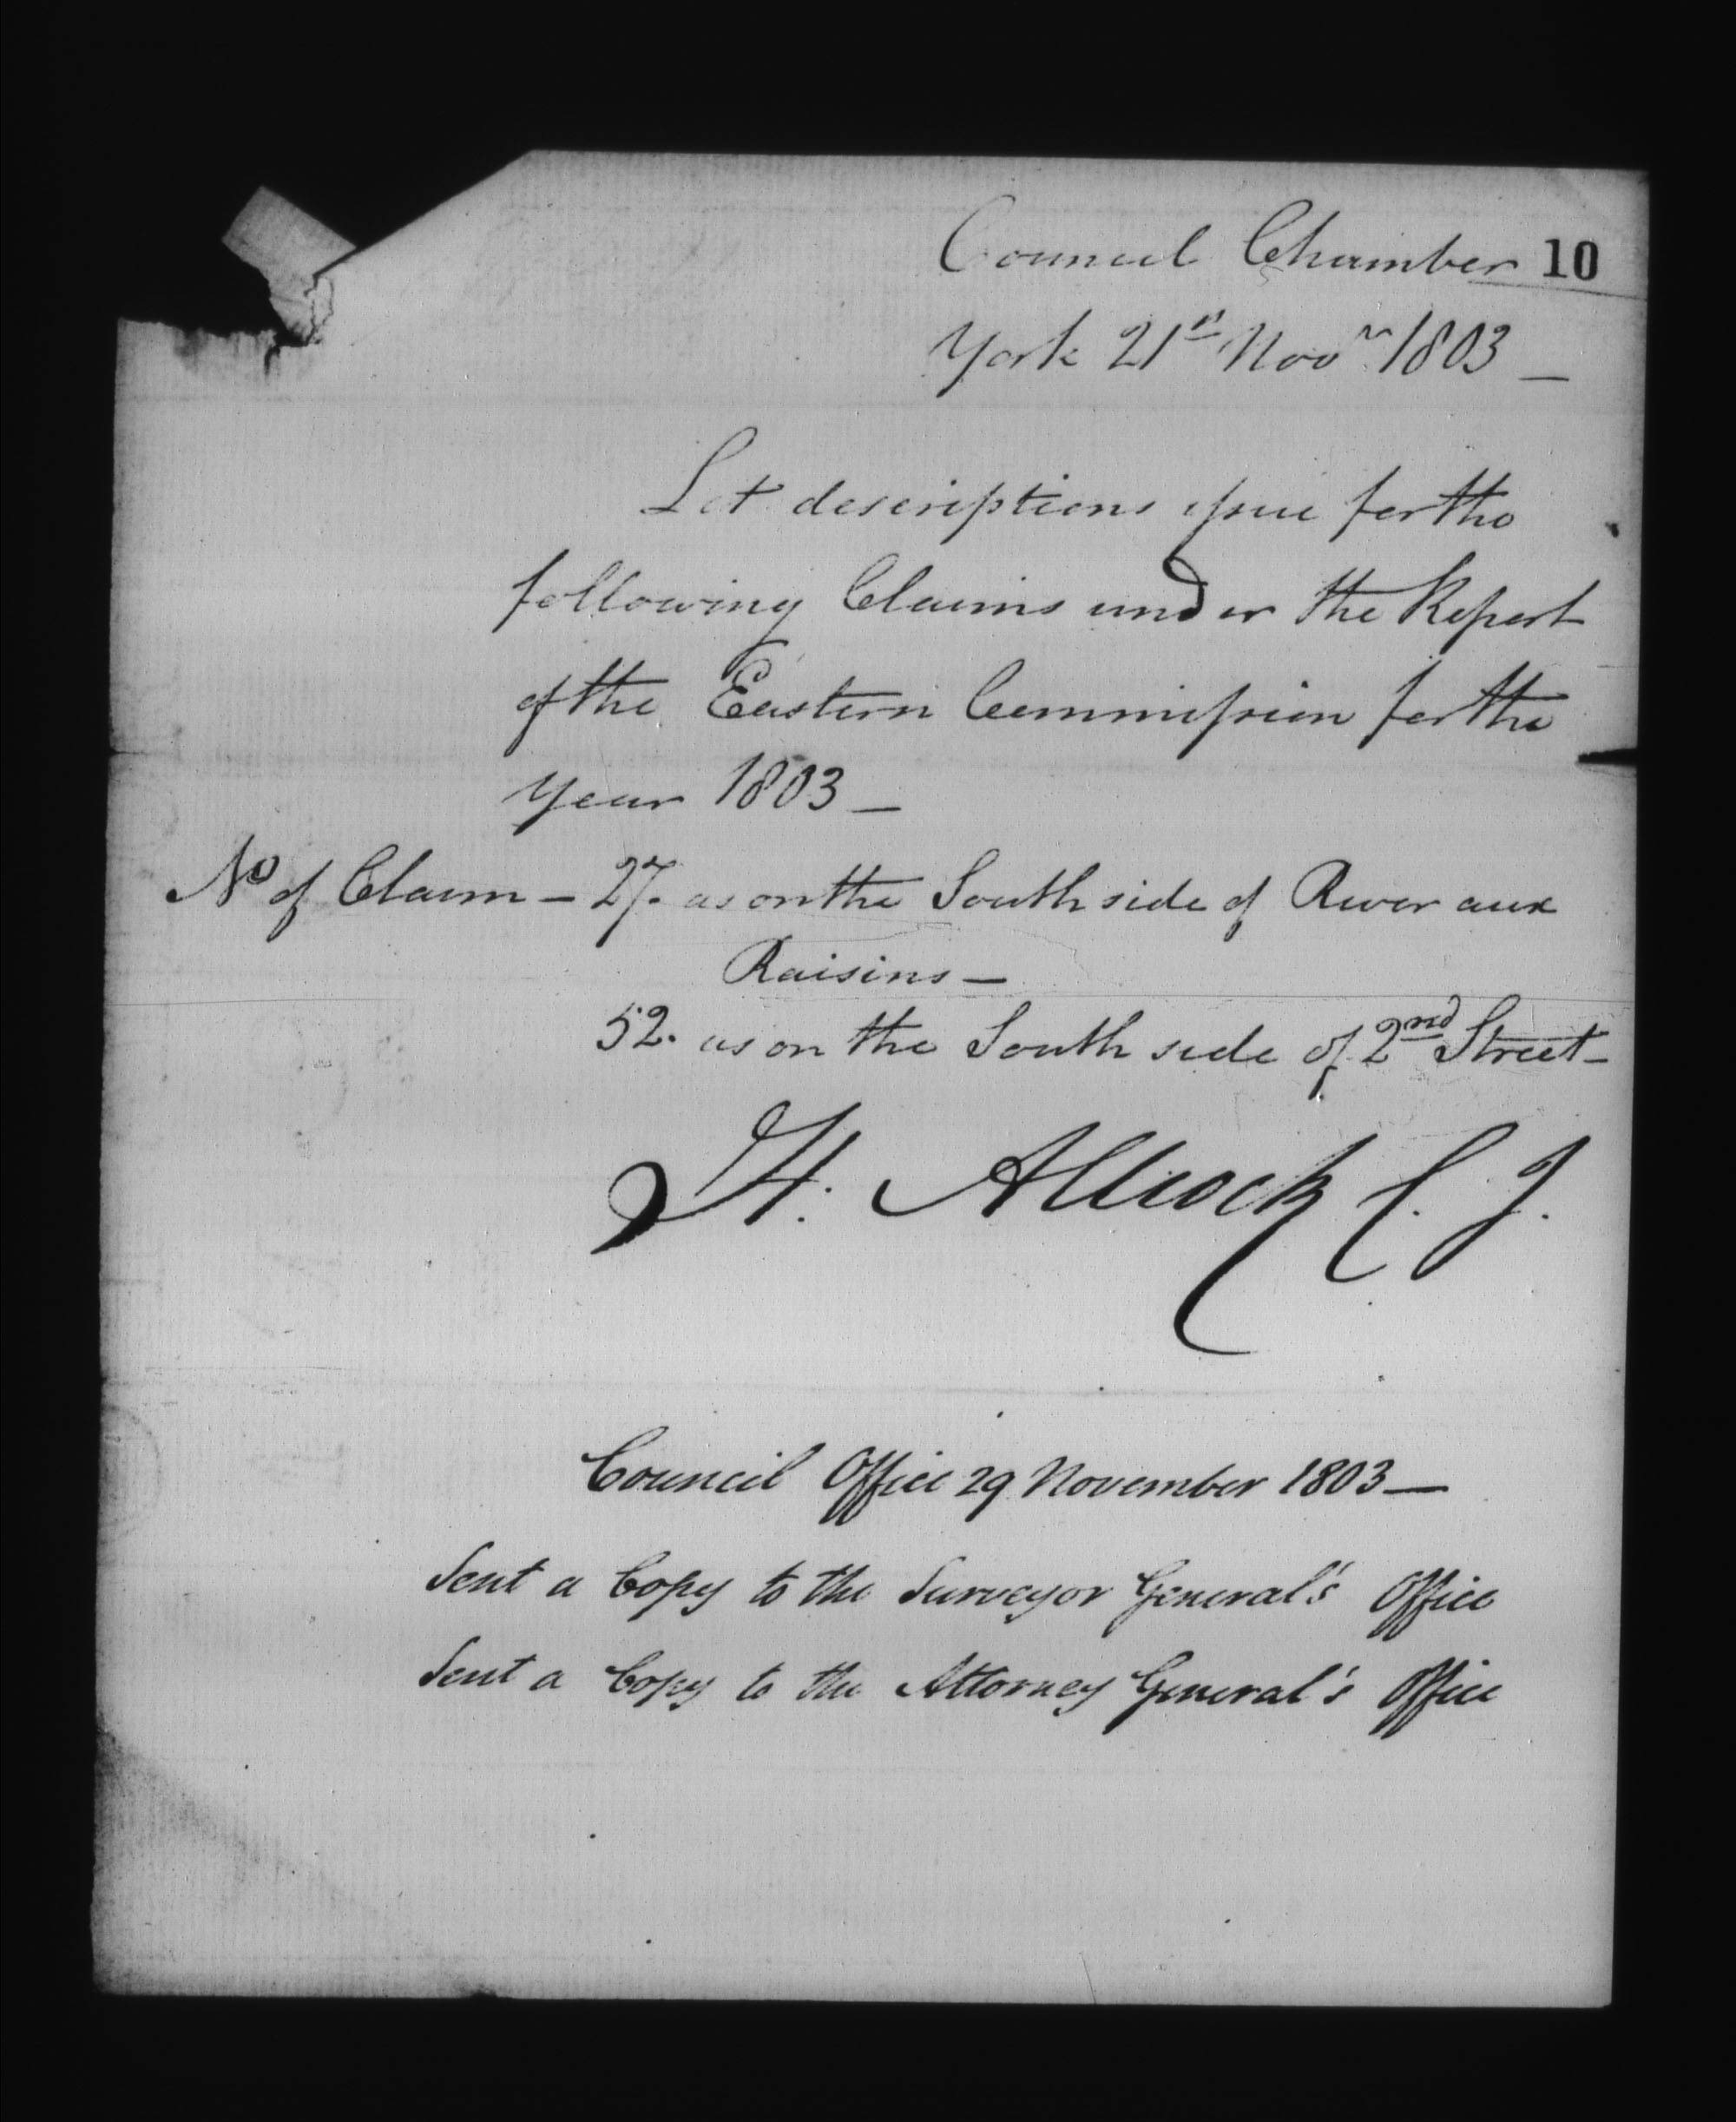 Council Chamber 10
York 21st Novr 1803 —
Let descriptions issue for the
following Claims under the Report
of the Eastern Commission for the
Year 1803 —
No of Claim — 27. as on the South side of River aux
Raisins —
52. as on the South side of 2nd Street —
H. Allcock C. J.
Council Office 29 November 1803 —
Sent a Copy to the Surveyor General's Office
Sent a Copy to the Attorney General's Office